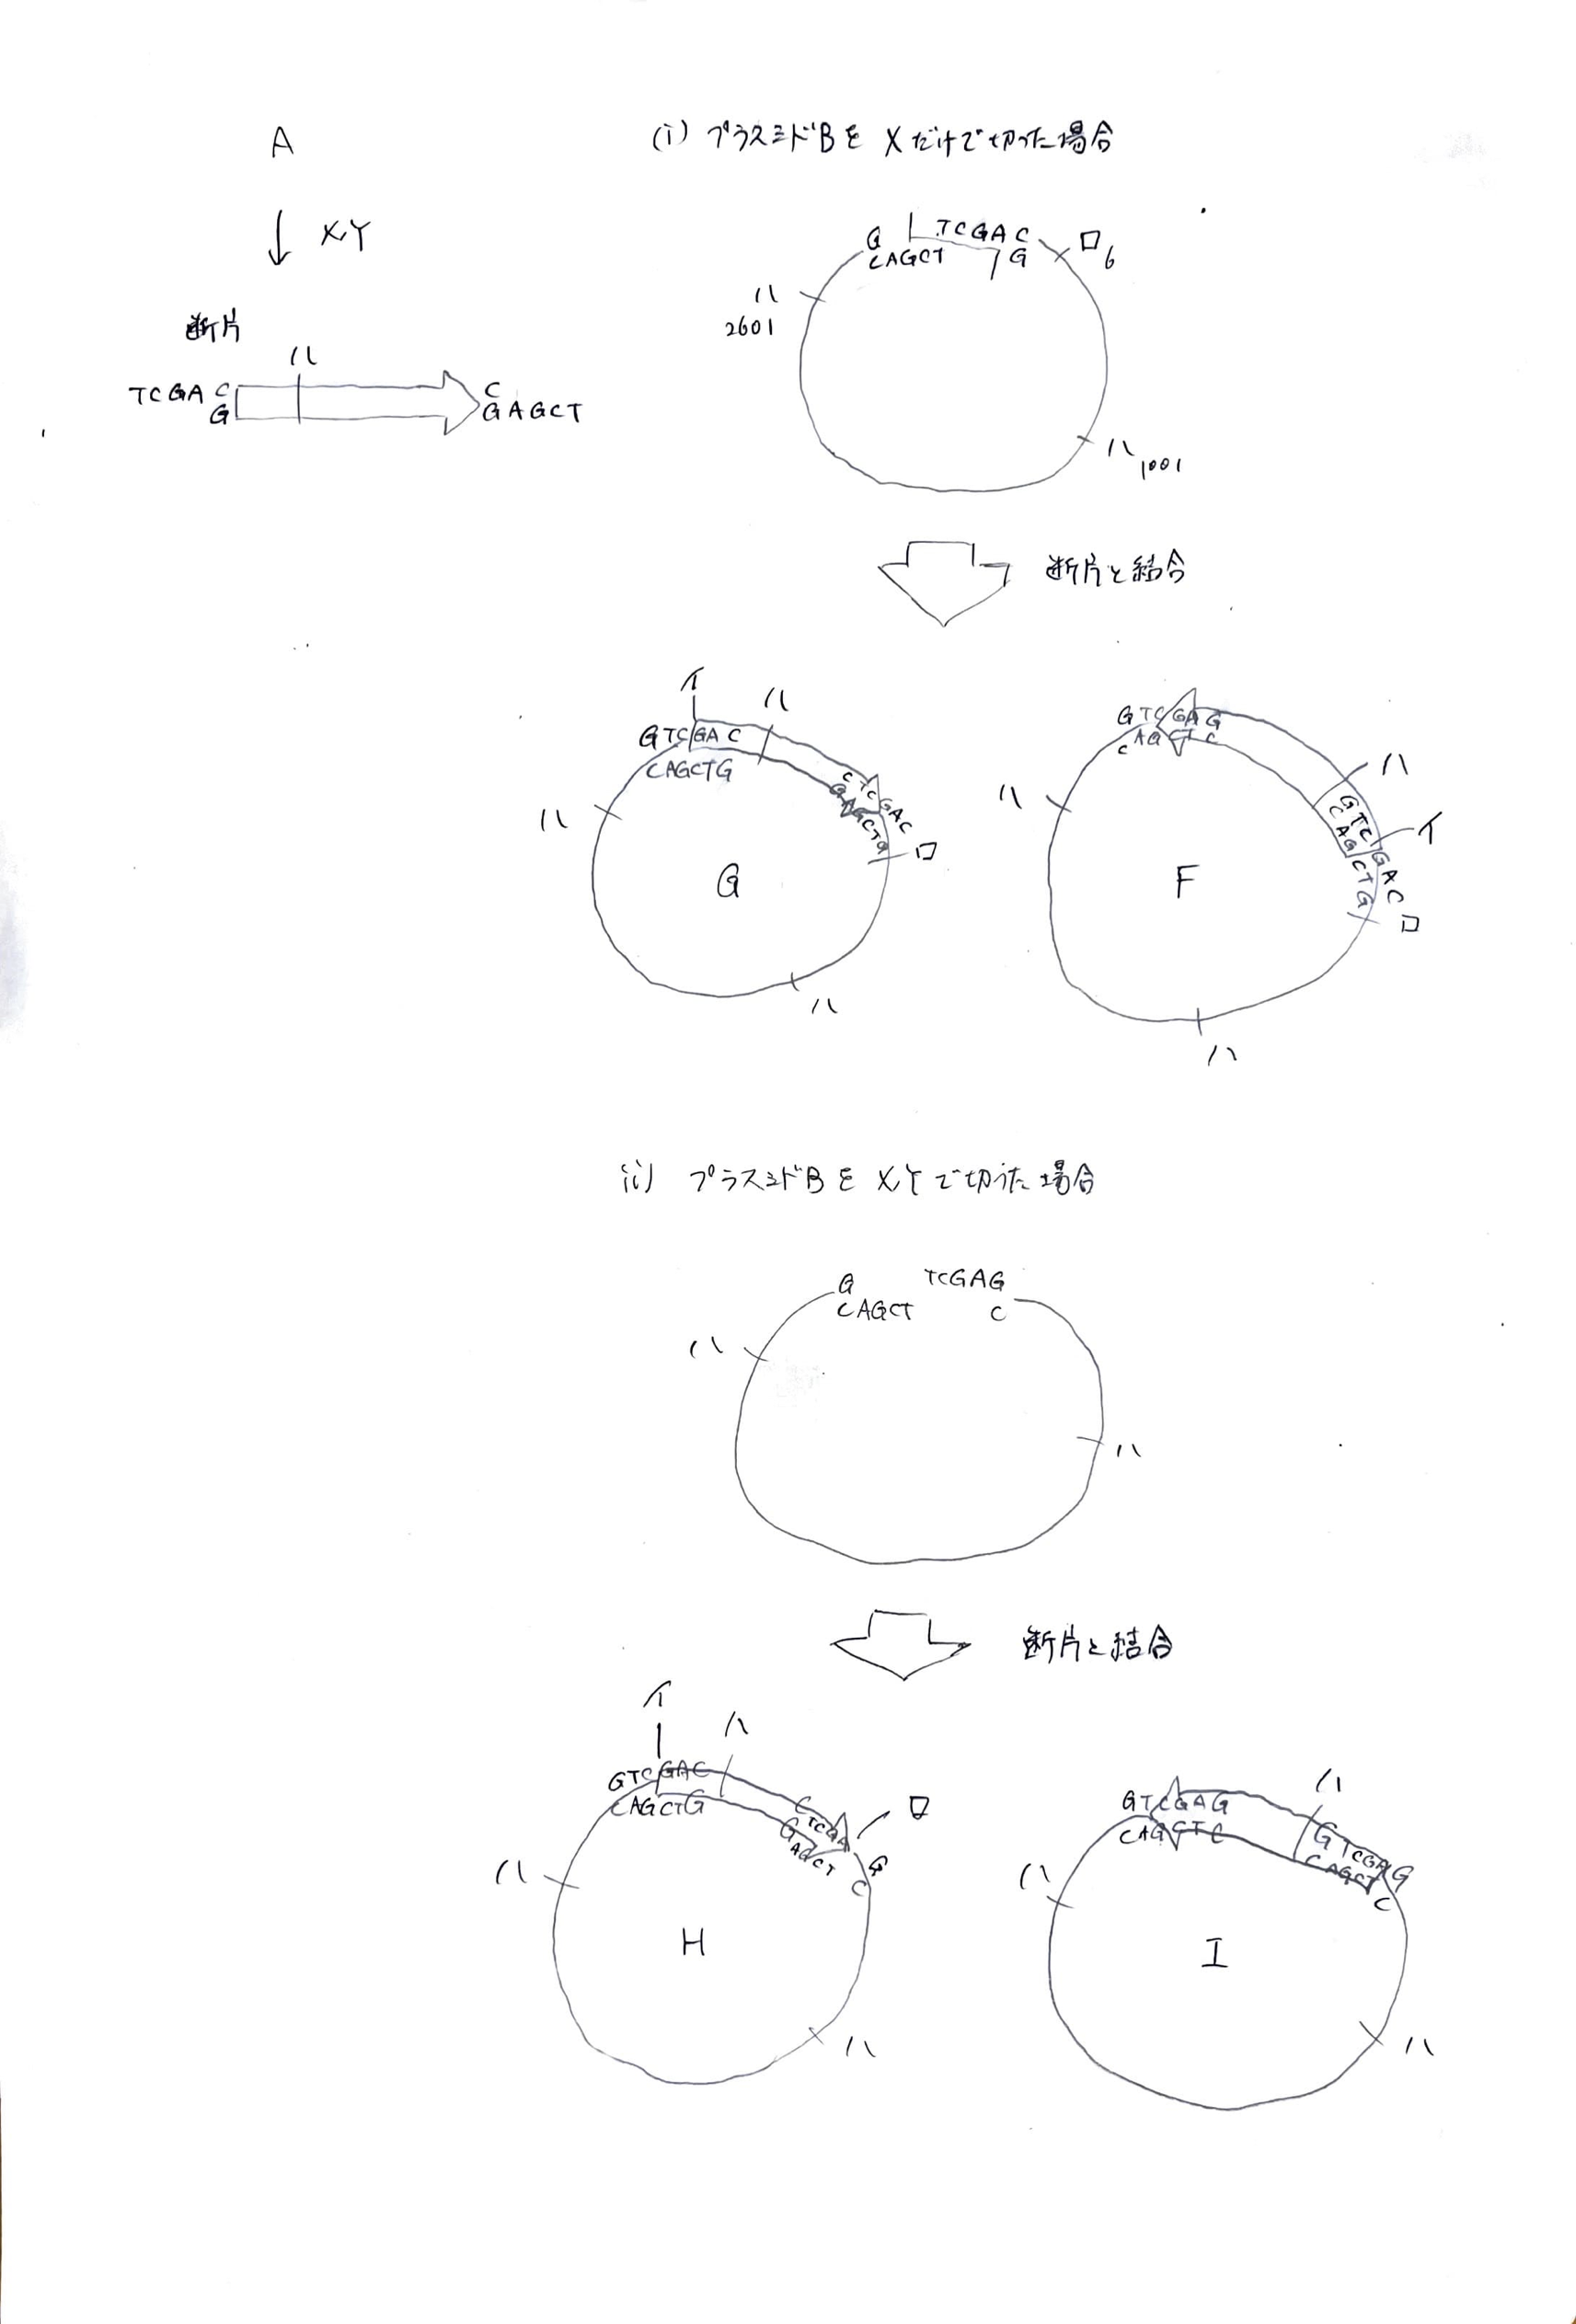 A
↓ X,Y
断片
ハ
TCGA C
G
C
GAGCT
(i) プラスミドBを Xだけで切った場合
G TCGAC
CAGCT G
ロ 6
ハ
2601
ハ 1001
断片と結合
イ
ハ
GTCGAC
CAGCTG
CTCGAC
GAGCTG
ハ
ロ
G
ハ
GTCGAG
CAGCTC
ハ
ハ
GTCGAC
CAGCTG
イ
ロ
F
ハ
(ii) プラスミドBを X,Yで切った場合
G TCGAG
CAGCT C
ハ
ハ
断片と結合
イ
ハ
GTCGAC
CAGCTG
CTCGAG
GAGCTC
ロ
ハ
H
ハ
ハ
GTCGAG
CAGCTC
GTCGAG
CAGCTC
ハ
I
ハ